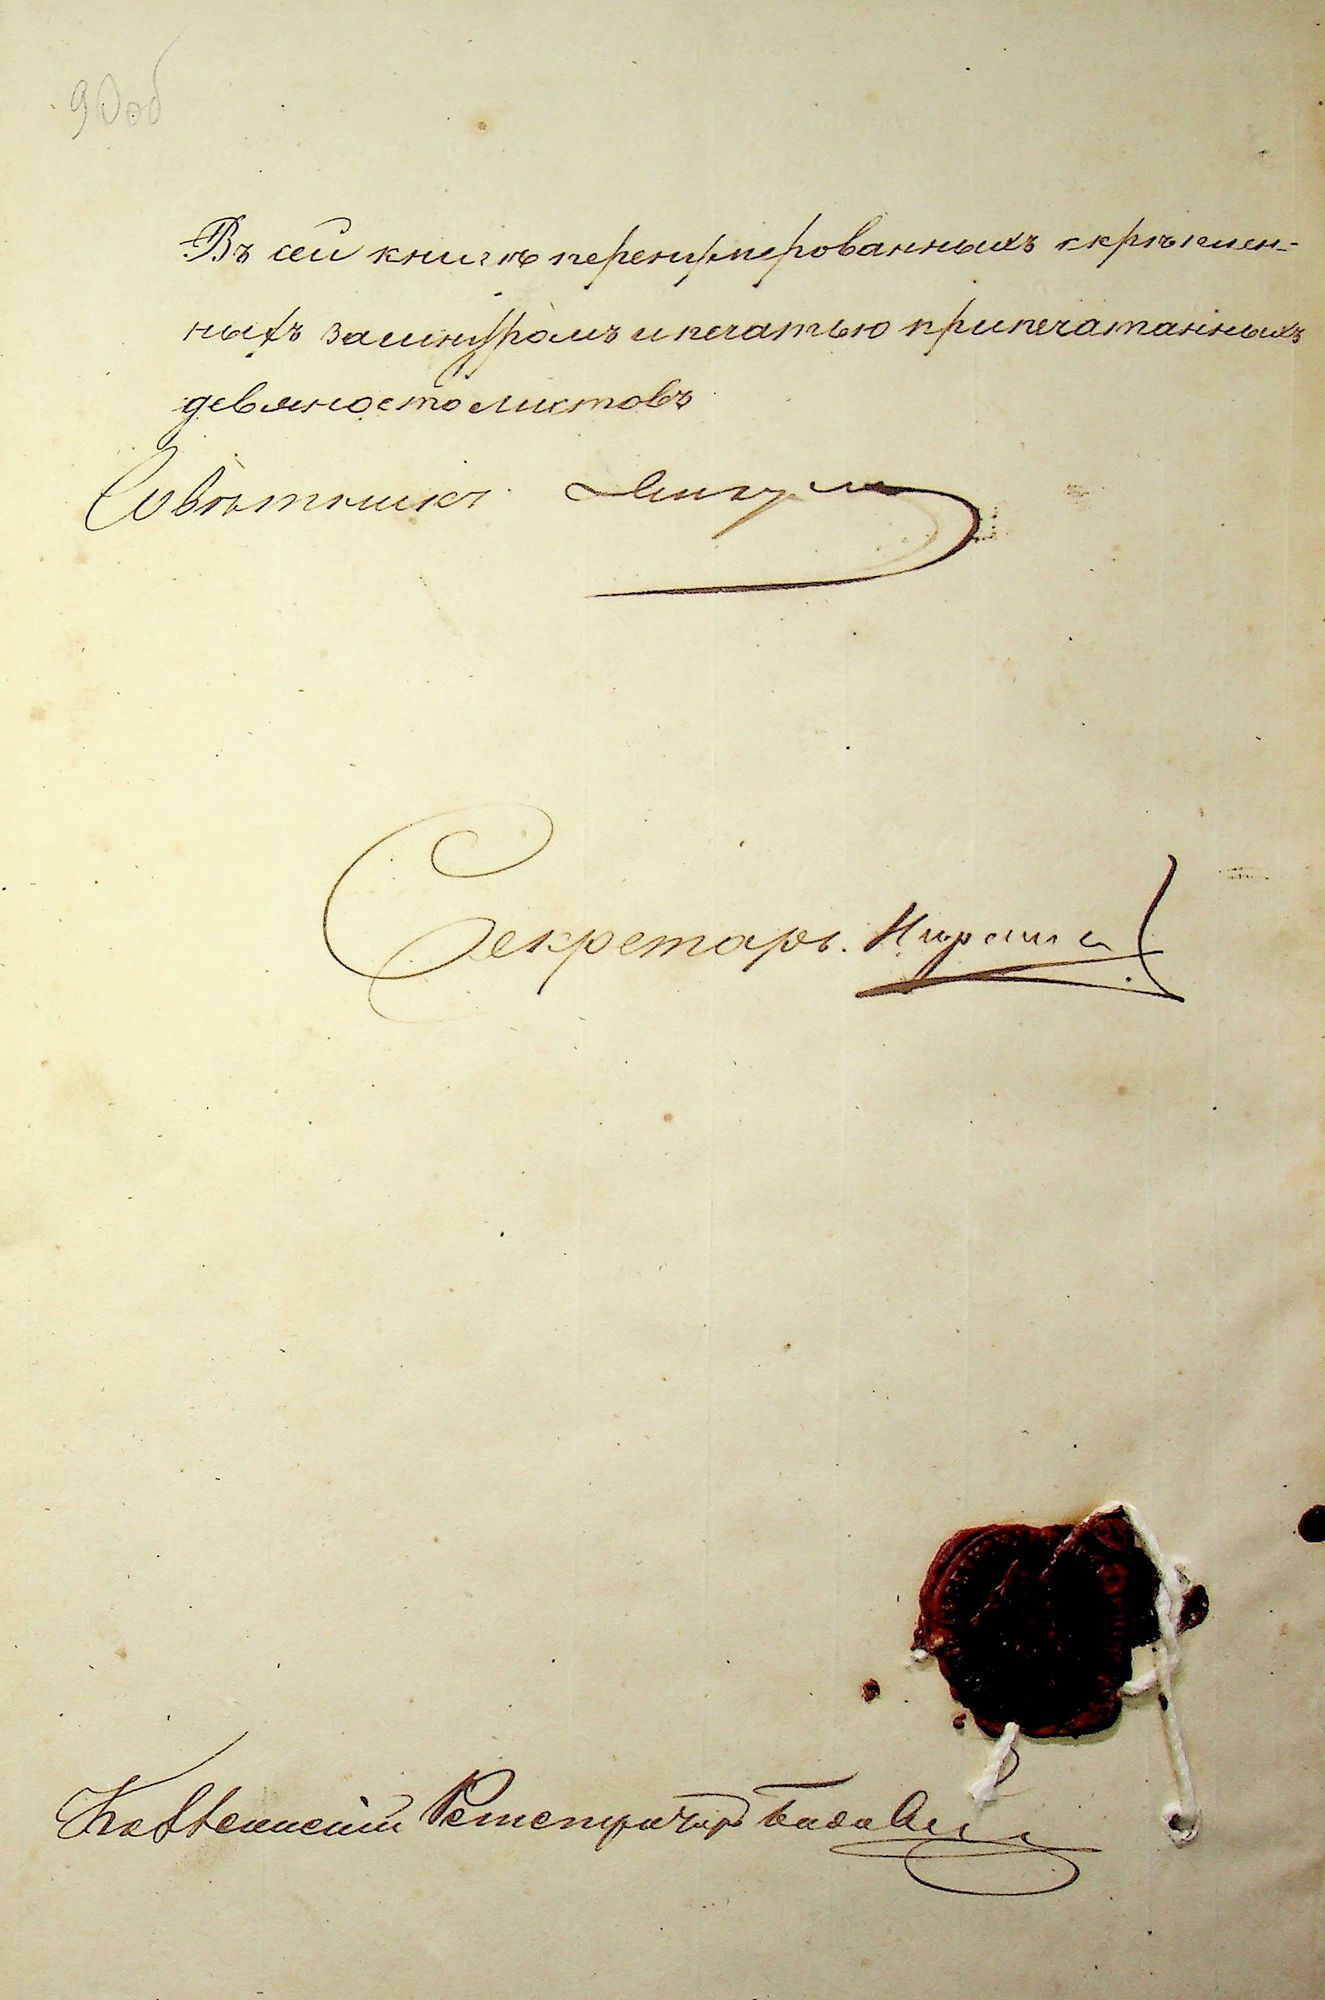 90 об
Въ сей книгѣ перенумерованныхъ скрѣплен-
ныхъ за шнуромъ и печатью припечатанныхъ
девяносто листовъ
Совѣтникъ
Секретарь
Коллежскій Регистраторъ